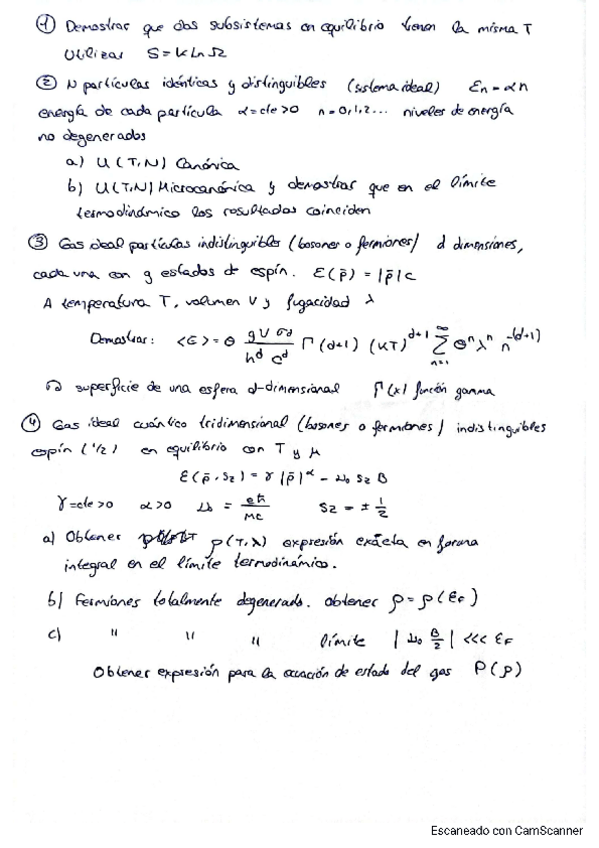 ① Demostrar que dos subsistemas en equilibrio tienen la misma T
Utilizar S = k Ln Ω
② N partículas idénticas y distinguibles (sistema ideal) En = αn
energía de cada partícula α = cte > 0 n = 0,1,2... niveles de energía
no degenerados
a) U(T,N) Canónica
b) U(T,N) Microcanónica y demostrar que en el límite
termodinámico los resultados coinciden
③ Gas ideal partículas indistinguibles (bosones o fermiones) d dimensiones,
cada una con g estados de espín. ε(p̄) = |p̄|c
A temperatura T, volumen V y fugacidad λ
Demostrar: <E> = θ (g V σd / h^d c^d) Γ(d+1) (kT)^(d+1) ∑_{n=1}^{∞} θ^n λ^n n^-(d+1)
σd superficie de una esfera d-dimensional Γ(x) función gamma
④ Gas ideal cuántico tridimensional (bosones o fermiones) indistinguibles
espín (1/2) en equilibrio con T y μ
ε(p̄, Sz) = γ |p̄|^α - μo Sz B
γ = cte > 0 α > 0 μo = eħ / mc Sz = ± 1/2
a) Obtener ρ(T,λ) expresión exácta en forma
integral en el límite termodinámico.
b) Fermiones totalmente degenerado. obtener ρ = ρ(εF)
c) " " " límite |μo B/2| <<< εF
Obtener expresión para la ecuación de estado del gas P(ρ)
Escaneado con CamScanner